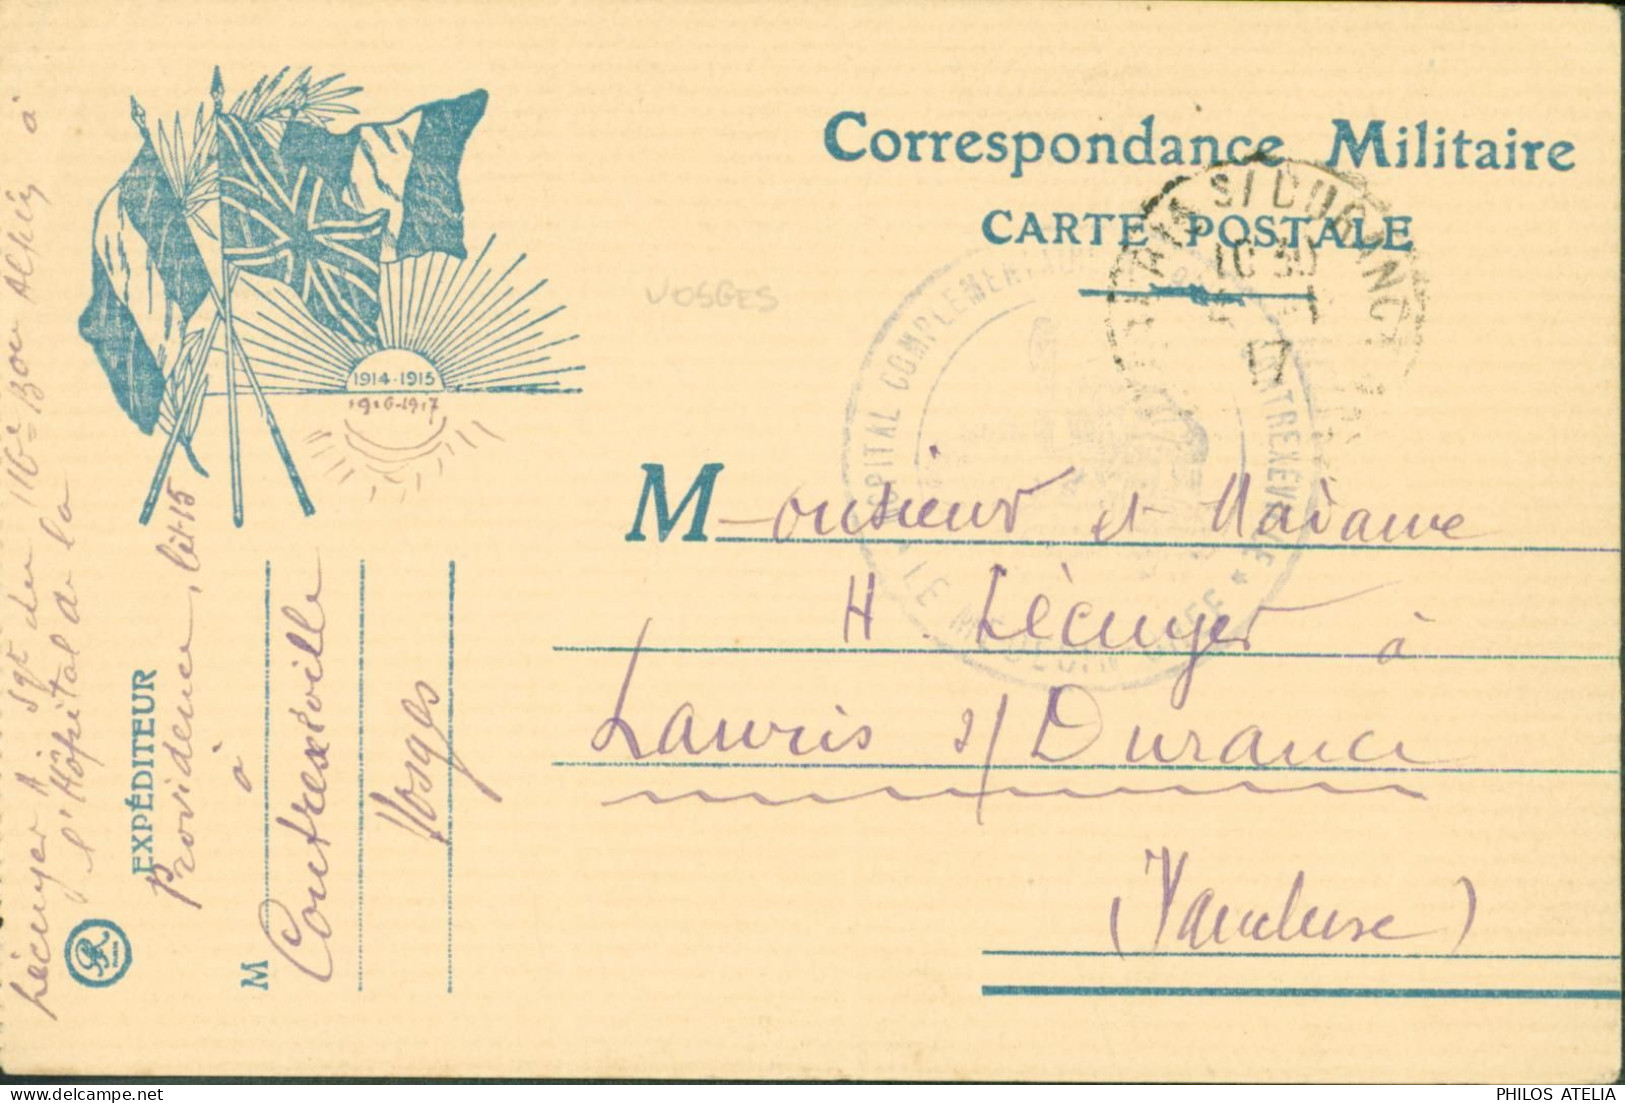 Correspondance Militaire
CARTE POSTALE
VOSGES
1914-1915
1916-1917
10 30
17
HOPITAL COMPLEMENTAIRE
CONTREXÉVILLE
LE MEDECIN CHEF
Monsieur et Madame
H. Lécuyer à
Lauris s/ Durance
(Vaucluse)
EXPÉDITEUR
Lécuyer A Sgt du 116e Bon Alpin à
l'Hôpital de la
Providence, lit 15
à
M Contrexéville
Vosges
PHILOS ATELIA